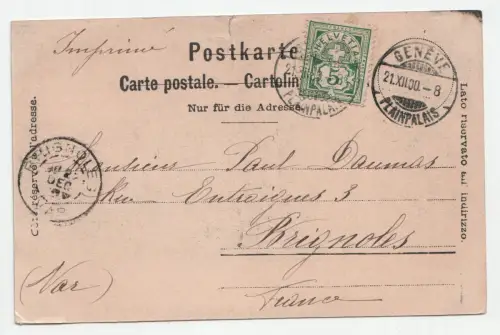 Imprimé
Postkarte
Carte postale. — Cartolin
Nur für die Adresse
HELVETIA
5
GENÈVE
21.XII.00.-8
PLAINPALAIS
PLAINPALAIS
Côté réservé à l'adresse.
Lato riservato all'indirizzo.
BRIGNOLES
DEC
Monsieur Paul Daumas
Rue Entraigues 3
Brignoles
(Var)
France